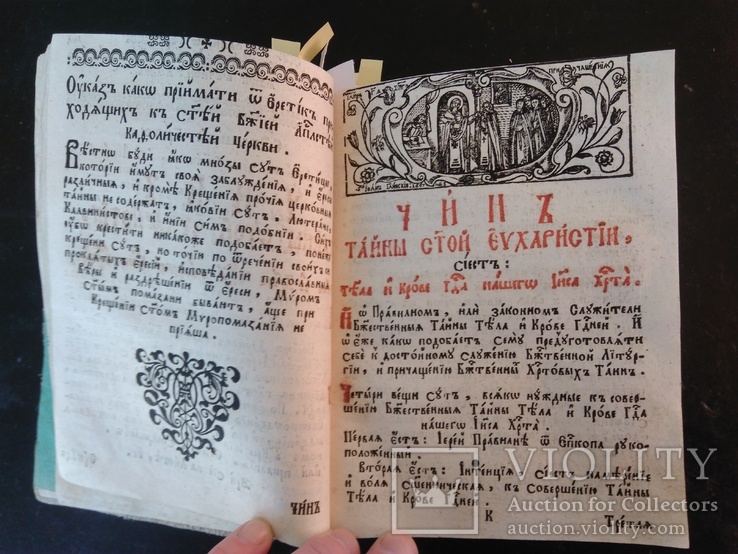 Оуказъ како прїймати ѿ Єретїкъ при
ходѧщихъ къ ст҃ѣй Бж҃їей Апⷭ҇лстѣй
Каѳоличестѣй Церкви.
Вѣстно буди ꙗко мнозы сутъ Єретицы,
которїи имутъ своѧ заблужденїѧ, и єреси
различныѧ, и кромѣ Крещенїѧ прочїѧ церковныѧ
тайны не содержатъ, ꙗковїи сутъ. Лютеране,
Калвинистове, и инїи симъ подобнїи. Сихъ
убѡ крестити никакоже подобаетъ, понеже
крещени сутъ, но точїю по ѿреченїи своихъ
проклѧтыхъ єресїй, исповѣданїи православныѧ
Вѣры и раздрѣшенїи ѿ єреси, Мѵромъ
ст҃ымъ помазани бываютъ, аще при
Крещенїи ст҃омъ Мѵропомазанїѧ не
прїѧша.
ЧИНЪ
ЧИНЪ
ТАЙНЫ СТ҃ОЙ ЄѴХАРИСТЇИ,
сїестъ:
тѣла и крове гдⷭ҇а нашегѡ іи҃са хрⷭ҇та̀.
Ѿ Правилномъ, или законномъ служители
Бжⷭ҇твенныѧ Тайны Тѣла и Крове Гдⷭ҇ней. И
ѿ еже какѡ подобаетъ сему предуготовлѧти
себѐ къ достойному служенїю Бжⷭ҇твенной Літур
гїи, и причащенїю Бжⷭ҇твенны Хрⷭ҇товыхъ Таинъ.
Четыри вещи сутъ, всѧкѡ нужныѧ къ совер
шенїю Бжⷭ҇твенныѧ Тайны Тѣла и Крове Гдⷭ҇а
нашегѡ Іи҃са Хрⷭ҇та.
Первая єстъ: Іерей Правилнѣ ѿ Єпⷭ҇копа руко
положенный.
Вторая єстъ: Інтенцїа, сїестъ намѣренїе
и волѧ сщ҃енническаѧ, къ Совершенїю Тайны
Тѣла и Крове Гдⷭ҇ней.
К Третаѧ
VIOLITY
Auction for Collectors
auction.violity.com